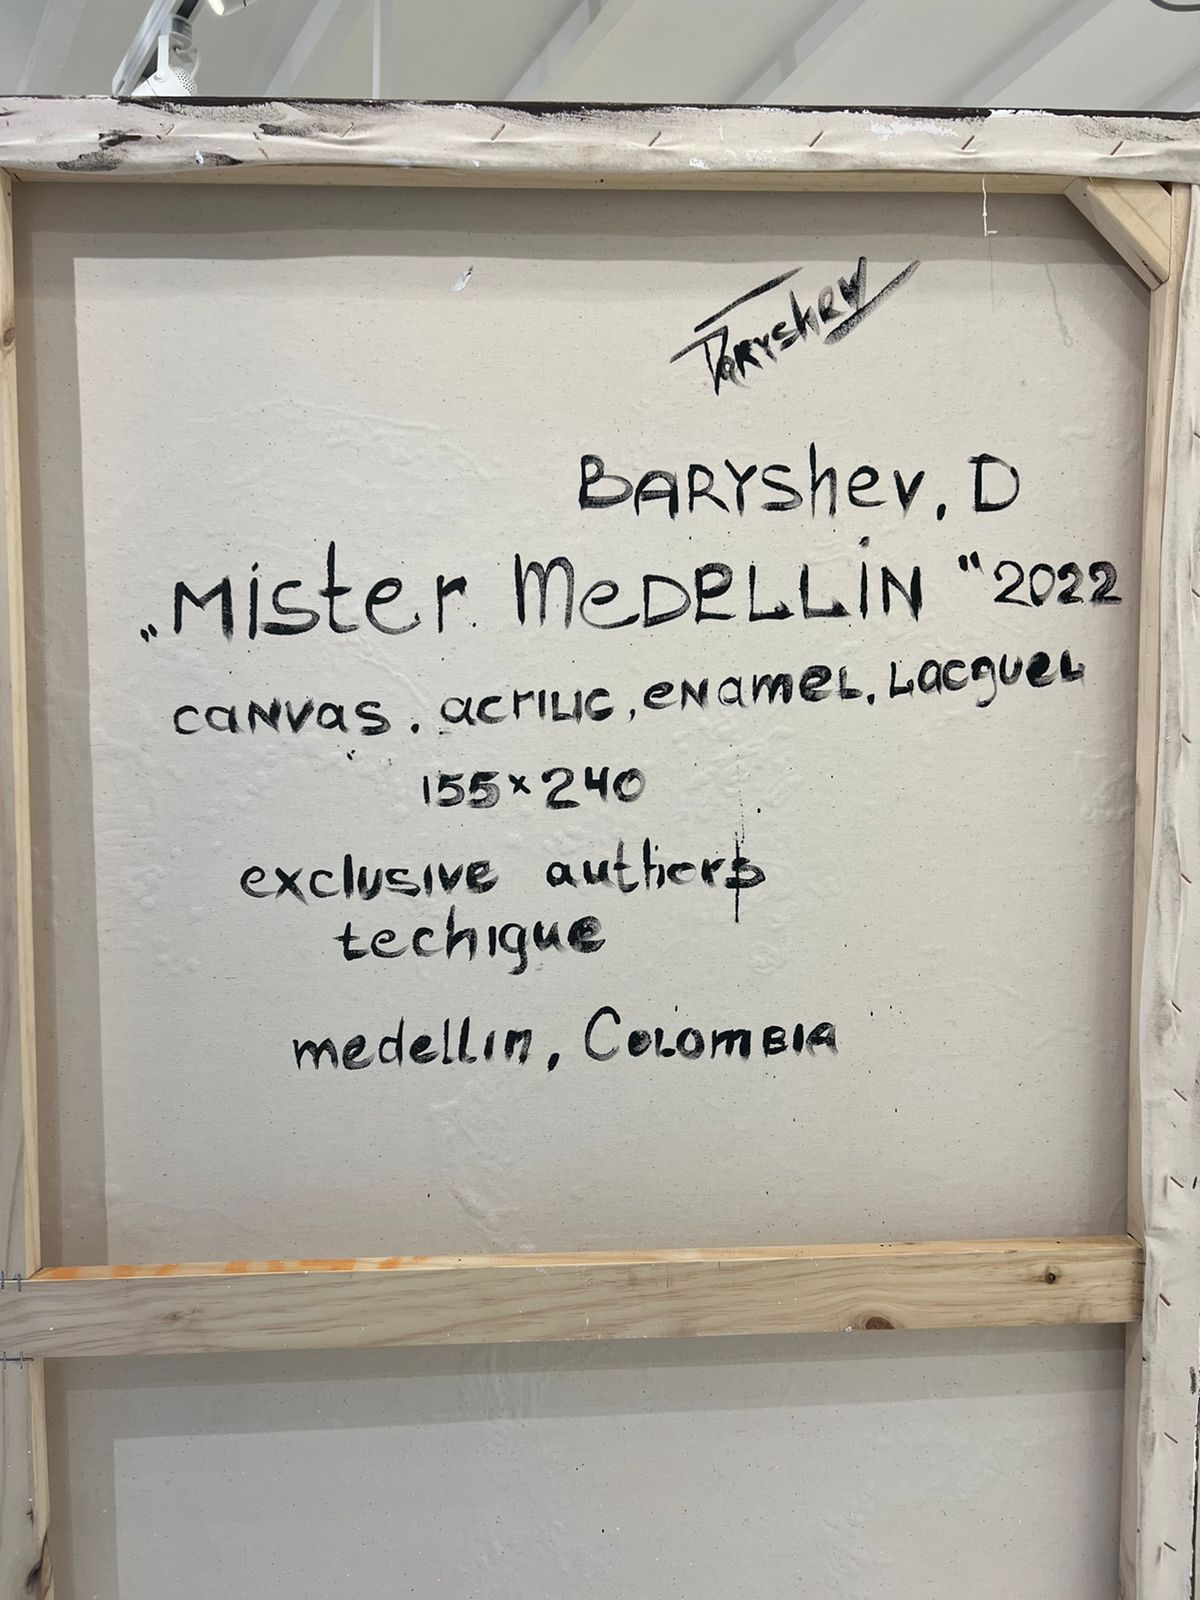 Baryshev
BARYShev, D
„Mister MeDELLiN" 2022
canvas. acrilic, enamel, Lacguel
155×240
exclusive authors
techigue
medellin, Colombia